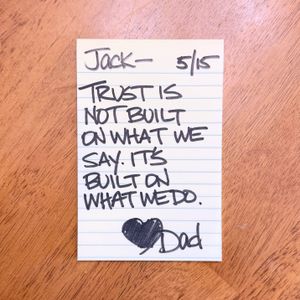 Jack— 5/15
TRUST IS
NOT BUILT
ON WHAT WE
SAY. IT'S
BUILT ON
WHAT WE DO.
Dad